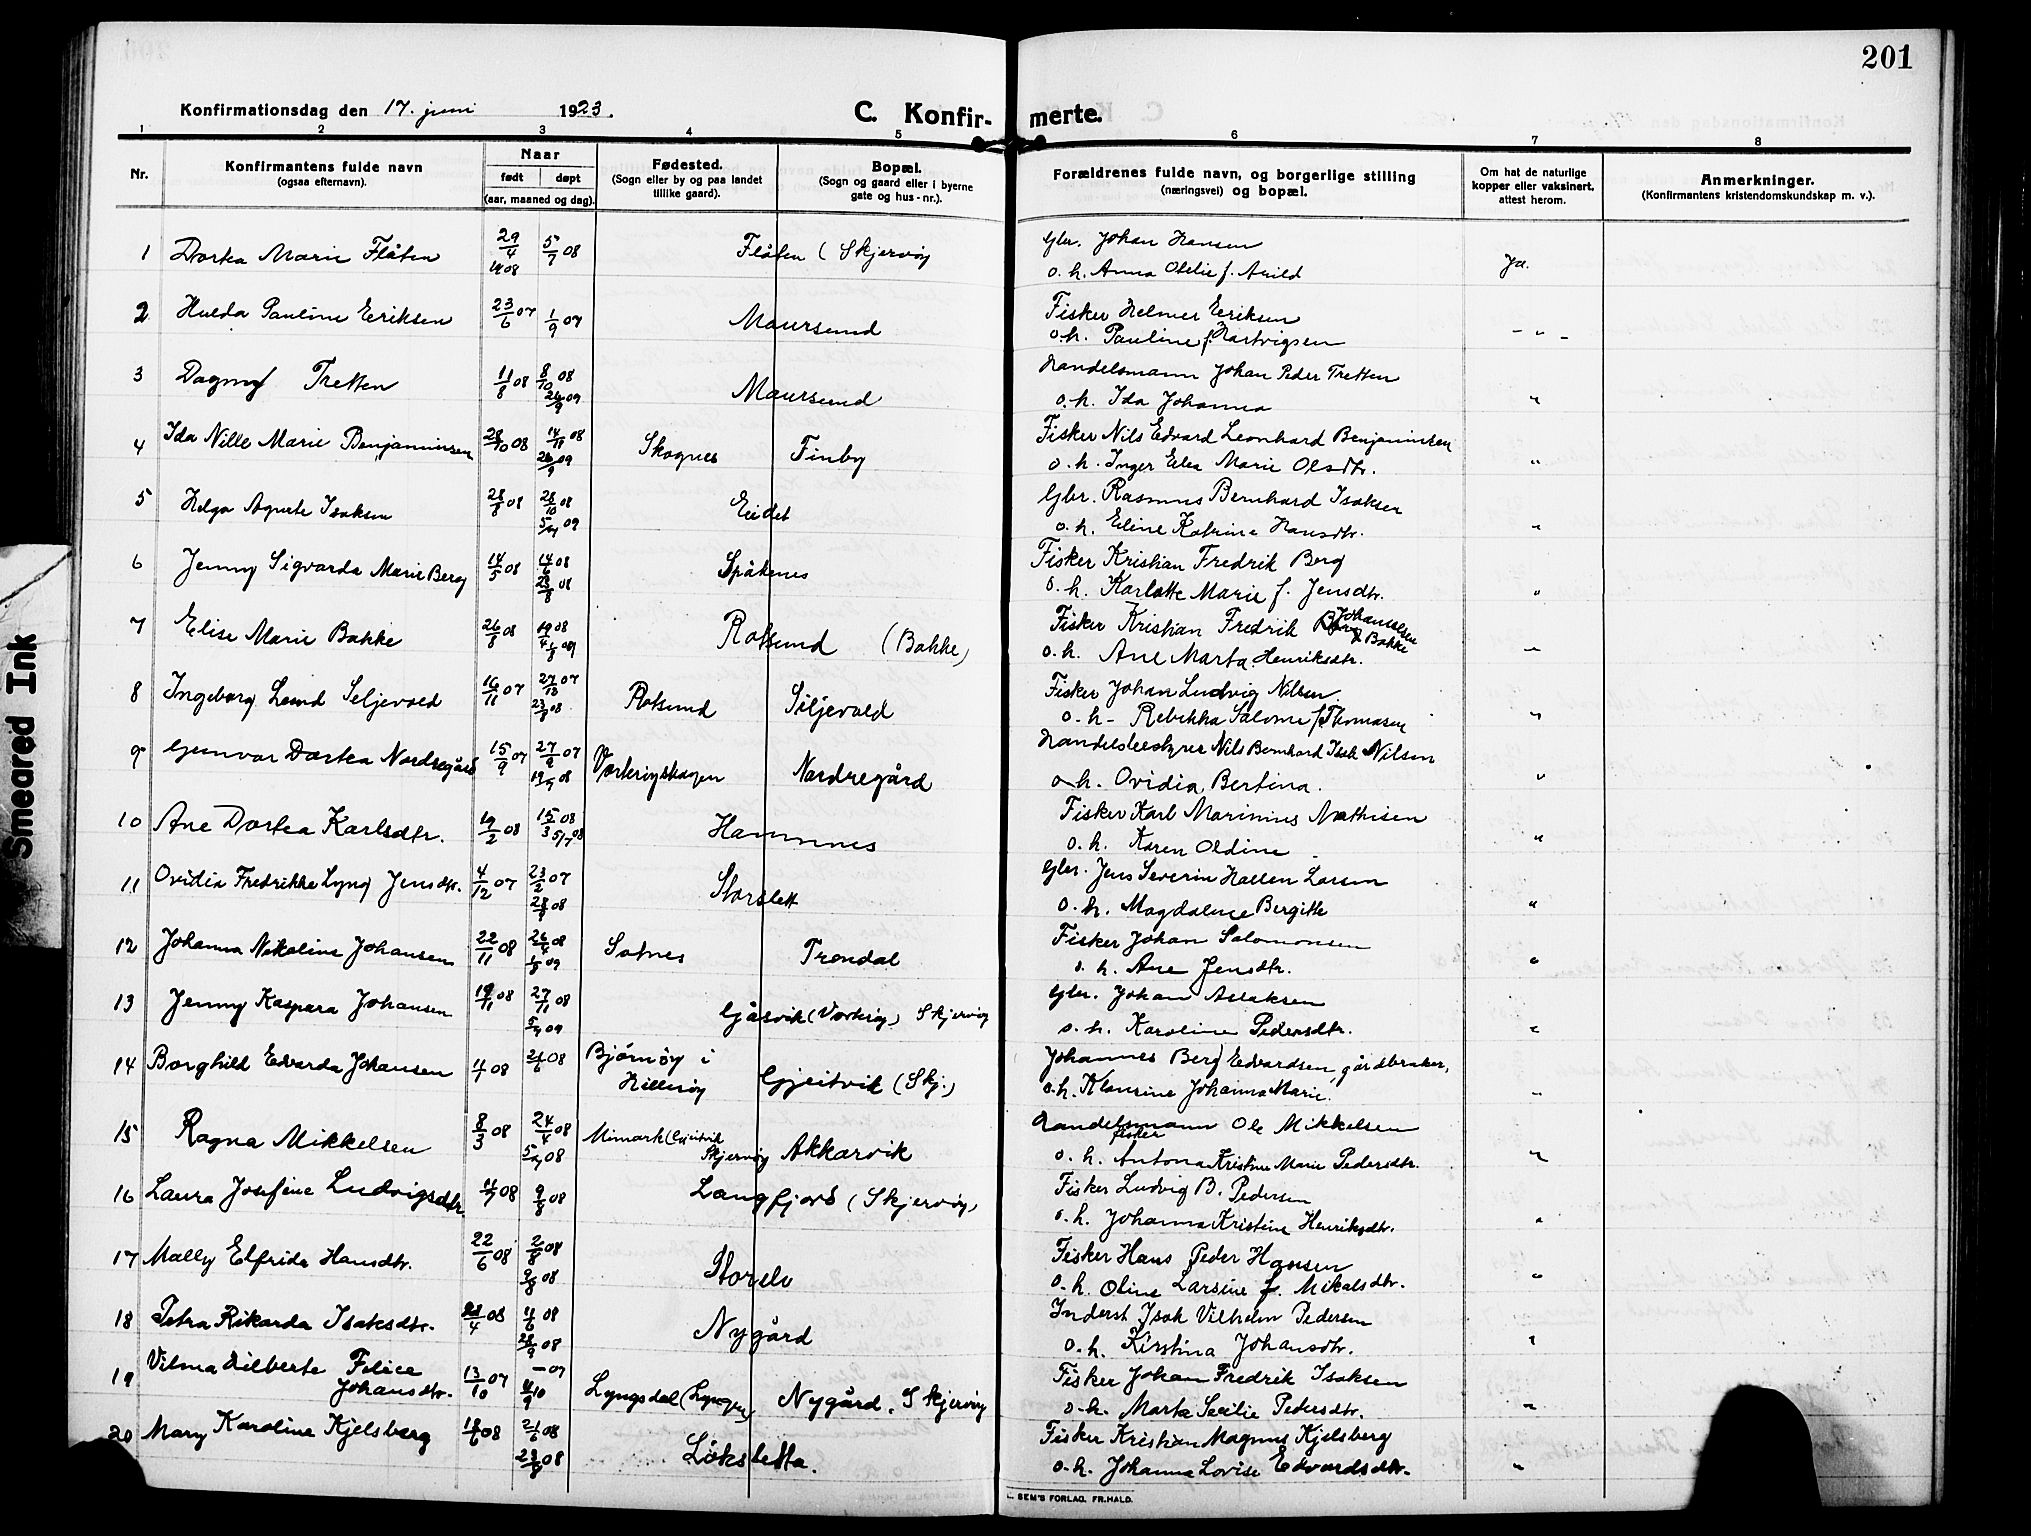 201
Konfirmationsdag den 17. juni 1923.
C. Konfir- merte.
1 2 3 4 5 6 7 8
Nr.
Konfirmantens fulde navn
(ogsaa efternavn).
Naar
født døpt
(aar, maaned og dag).
Fødested.
(Sogn eller by og paa landet
tillike gaard).
Bopæl.
(Sogn og gaard eller i byerne
gate og hus-nr.).
Forældrenes fulde navn, og borgerlige stilling
(næringsvei) og bopæl.
Om hat de naturlige
kopper eller vaksinert,
attest herom.
Anmerkninger.
(Konfirmantens kristendomskundskap m. v.).
1 Dortea Marie Flåten 29/4 1908 5/7 08 Flåten (Skjervøy Gbr. Johan Hansen Ja.
o. h. Anna Otelie f. Arild
2 Hulda Pauline Eriksen 23/6 07 1/9 07 Maursund Fisker Helmer Eriksen - " -
o. h. Pauline f. Hartvigsen
3 Dagny Tretten 11/8 08 8/10 08 Maursund Handelsmann Johan Peder Tretten
26/9 09 o. h. Ida Johanna "
4 Ida Nille Marie Benjaminsen 28/10 08 14/11 08 Skognes Finby Fisker Nils Edvard Leonhard Benjaminsen
26/9 09 o. h. Inger Elea Marie Olsdtr. "
5 Helga Agnete Isaksen 28/8 08 28/10 08 Eidet Gbr. Rasmus Bernhard Isaksen
09 o. h. Eline Katrine Hansdtr. "
6 Jenny Sigvarda Marie Berg 14/5 08 14/6 08 Spåkenes Fisker Kristian Fredrik Berg
23/8 08 o. h. Karlotte Marie f. Jensdtr. "
7 Elise Marie Bakke 26/8 08 08 Rotsund (Bakke) Fisker Kristian Fredrik Johannesen Bakke
o. h. Ane Marta Henriksdtr. "
8 Ingeborg Lund Seljevold 16/11 07 07 Rotsund Siljevold Fisker Johan Ludvig Nilsen
23/8 08 o. h. - Rebekka Salome f. Thomasen "
9 Gunvor Dortea Nordregård 15/9 07 27/9 07 Nordregård Nils Bernhard Isak Nilsen
08 o. h. Ovidia Bertina. "
10 Ane Dortea Karlsdtr. 19/2 08 15/3 08 5/7 08 Hamnnes Fisker Karl Marinius Mathisen
o. h. Karen Oldine "
11 Ovidia Fredrikke Lyng Jensdtr. 4/12 07 07 Storslett Gbr. Jens Severin Hallen Larsen
08 o. h. Magdalene Bergitte "
12 Johanna Nikoline Johansen 22/11 08 08 Sotnes Trondal Fisker Johan Salomonsen
09 o. h. Ane Jensdtr. "
13 Jenny Kaspara Johansen 19/11 08 27/11 08 Gåsvik (Vorterøy) Skjervøy Gbr. Johan Aslaksen
09 o. h. Karoline Pedersdtr. "
14 Borghild Edvarda Johansen 08 08 Bjørnøy i Gjeitvik (Skj.) Johannes Berg Edvardsen gårdbruker,
Hillesøy o. h. Klausine Johanna Marie. "
15 Ragna Mikkelsen 8/3 08 24/4 08 (Gjeitvik Akkarvik Handelsmann Ole Mikkelsen
08 Skjervøy fisker
o. h. Antona Kristine Marie Pedersdtr. "
16 Laura Josefine Ludvigsdtr. 08 9/8 08 Langfjord (Skjervøy) Fisker Ludvig B. Pedersen
o. h. Johanna Kristine Henriksdtr. "
17 Mally Elfrida Hansdtr. 22/6 08 2/8 08 Storelv Fisker Hans Peder Hansen
08 o. h. Oline Larsine f. Mikalsdtr. "
18 Petra Rikarda Isaksdtr. 08 08 Nygård Inderst Isak Vilhelm Pedersen
28/9 08 o. h. Kirstina Johansdtr. "
19 Vilma Hilberte Felice 13/10 07 - 07 Lyngsdal (Lyngen) Nygård. Skjervøy Fisker Johan Fredrik Isaksen
Johansdtr. o. h. Marta Secilie Pedersdtr. "
20 Mary Karoline Kjelsberg 08 08 Løksletta. Fisker Kristian Magnus Kjelsberg
23/8 08 o. h. Johanna Lovise Edvardsdtr. "
SEM'S FORLAG, FR.HALD.
Smeared Ink